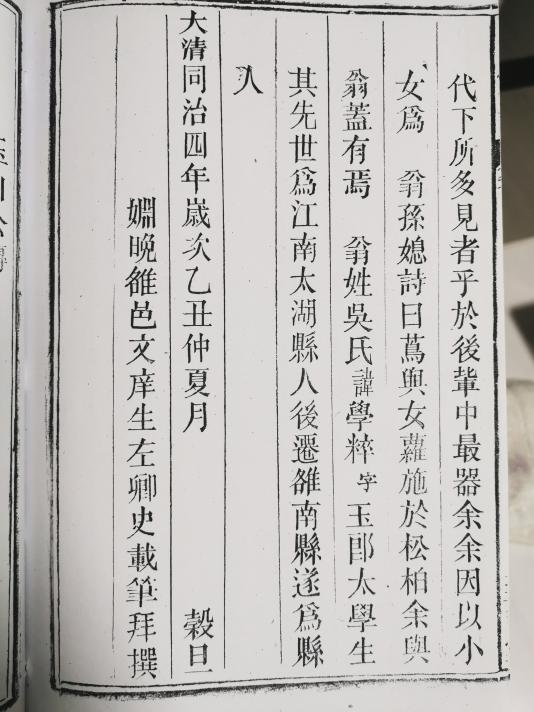 代下所多見者乎於後輩中最器余余因以小
女爲 翁孫媳詩曰蔦與女蘿施於松柏余與
翁蓋有焉 翁姓吳氏諱學粹字玉郎太學生
其先世爲江南太湖縣人後遷雒南縣遂爲縣
人
大清同治四年歲次乙丑仲夏月 穀旦
姻晚雒邑文庠生左卿史載筆拜撰